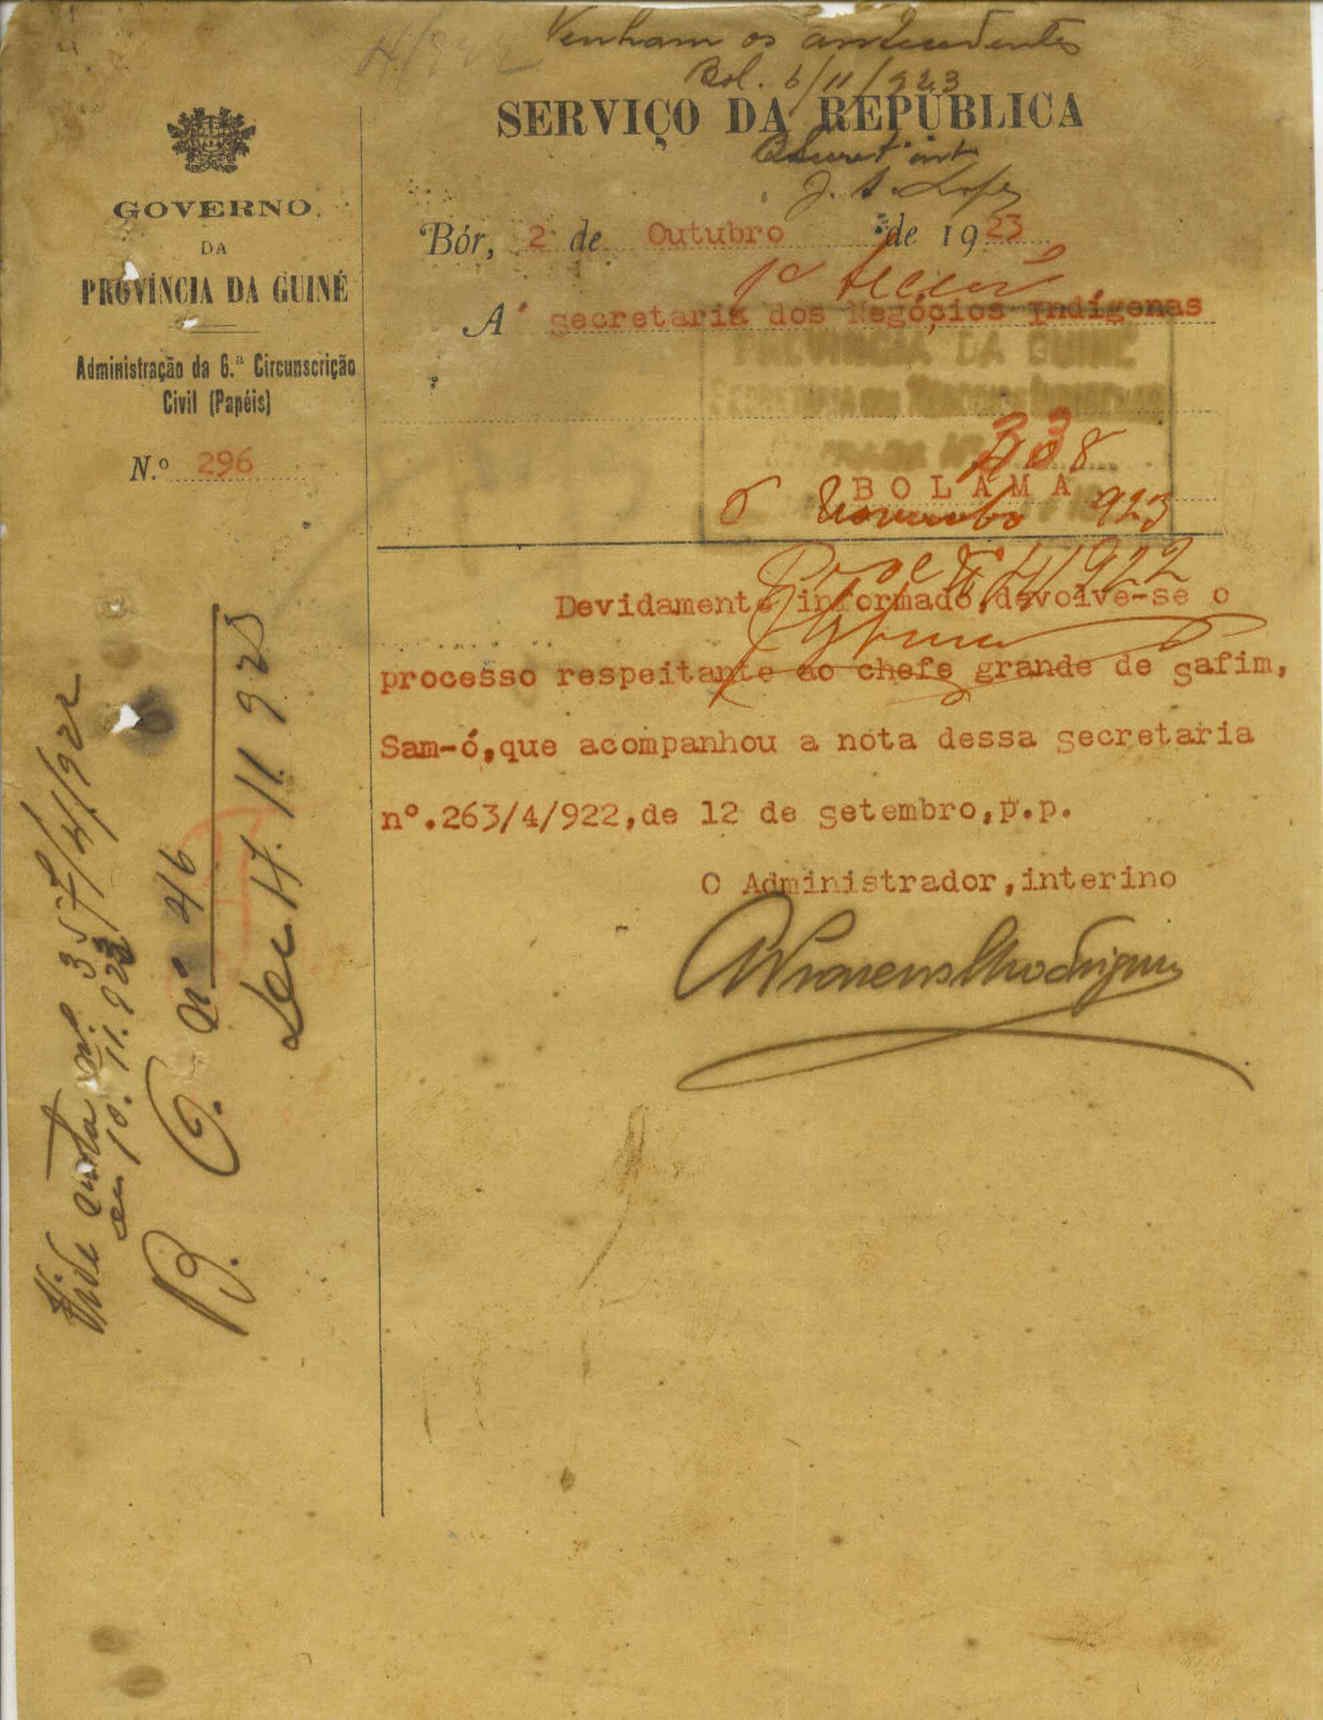 4/922
Venham os antecedentes
Bol. 6/11/923
SERVIÇO DA REPÚBLICA
J. A. Lopes
GOVERNO
DA
PROVÍNCIA DA GUINÉ
Administração da 6.ª Circunscrição
Civil (Papéis)
N.º 296
Bór, 2 de Outubro de 1923
A' secretaria dos Negócios Indígenas
PROVINCIA DA GUINÉ
SECRETARIA DOS NEGOCIOS INDIGENAS
338
BOLAMA
6 Novembro 923
Proc. nº 4/922
Devidamente informado,devolve-se o
processo respeitante ao chefe grande de safim,
Sam-ó,que acompanhou a nota dessa secretaria
nº.263/4/922,de 12 de setembro,p.p.
O Administrador,interino
Vide nota nº. 357/4/922
em 10.11.923
B. O. nº 46
de 17.11.923